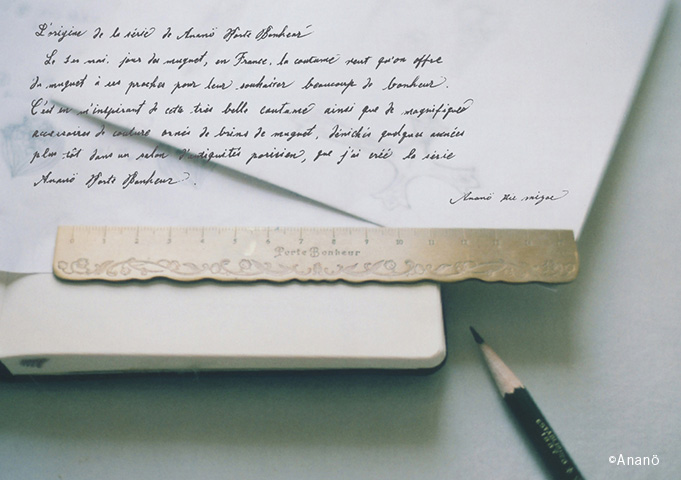 L'origine de la série de Ananö Porte Bonheur
Le 1er mai, jour du muguet, en France, la coutume veut qu'on offre
du muguet à ses proches pour leur souhaiter beaucoup de bonheur.
C'est en m'inspirant de cette très belle coutume ainsi que de magnifiques
accessoires de couture ornés de brins de muguet, dénichés quelques années
plus tôt dans un salon d'antiquités parisien, que j'ai créé la série
Ananö Porte Bonheur.
Ananö
0 1 2 3 4 5 6 7 8 9 10 11 12 13
Porte Bonheur
©Ananö